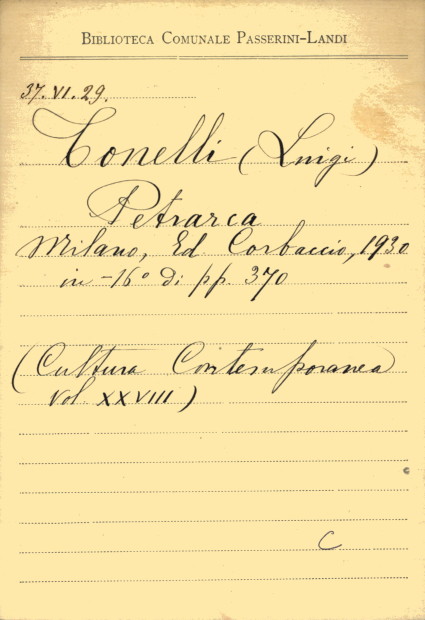 BIBLIOTECA COMUNALE PASSERINI-LANDI
37.VI.29.
Tonelli (Luigi)
Petrarca
Milano, Ed Corbaccio, 1930
in-16° di pp. 370
(Cultura Contemporanea
Vol XXVIII)
C